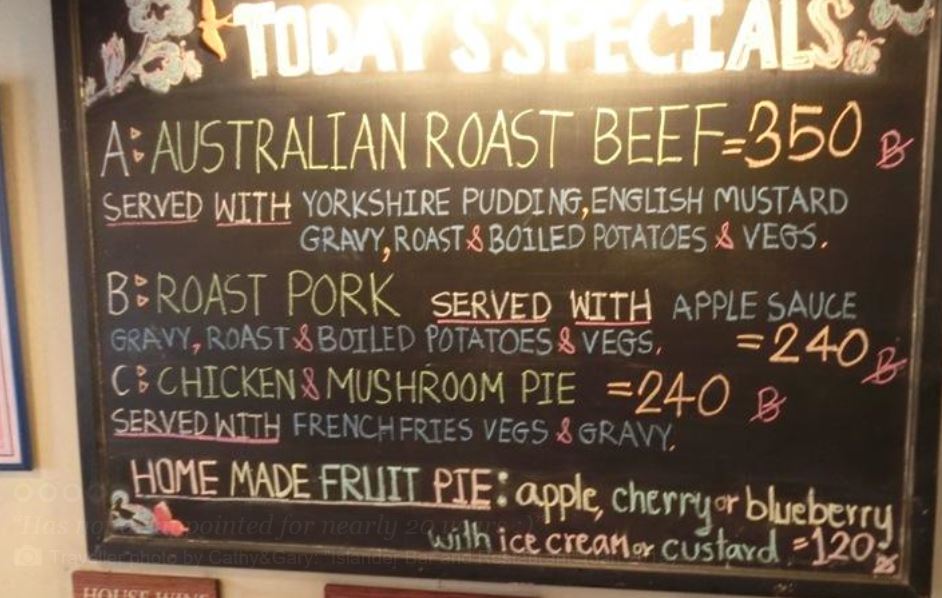 TODAY'S SPECIALS
A: AUSTRALIAN ROAST BEEF=350 ฿
SERVED WITH YORKSHIRE PUDDING, ENGLISH MUSTARD
GRAVY, ROAST & BOILED POTATOES & VEGS.
B: ROAST PORK SERVED WITH APPLE SAUCE
GRAVY, ROAST & BOILED POTATOES & VEGS. =240 ฿
C: CHICKEN & MUSHROOM PIE =240 ฿
SERVED WITH FRENCH FRIES VEGS & GRAVY.
HOME MADE FRUIT PIE: apple, cherry or blueberry
with ice cream or custard =120฿
"Has not disappointed for nearly 20 years :)"
Traveller photo by Cathy&Gary: "Islander Bar and Restaurant
HOUSE WINE